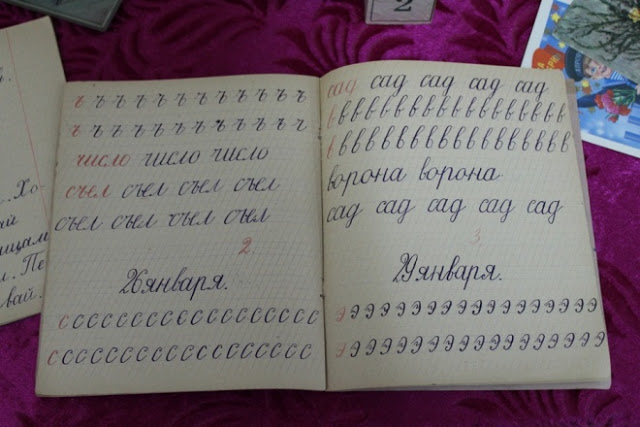 2
. Хо-
ай
ицам
л. Пе
вай.
ъ ъ ъ ъ ъ ъ ъ ъ ъ ъ ъ ъ
ъ ъ ъ ъ ъ ъ ъ ъ ъ ъ ъ ъ
число число число
съел съел съел съел
съел съел съел съел
2.
26 января.
с с с с с с с с с с с с с с с с с с
с с с с с с с с с с с с с с с с с
сад сад сад сад сад
в в в в в в в в в в в в в в в в в
в в в в в в в в в в в в в в в в в
ворона ворона
сад сад сад сад сад
3.
29 января.
э э э э э э э э э э э э э э э э э э
э э э э э э э э э э э э э э э э э э